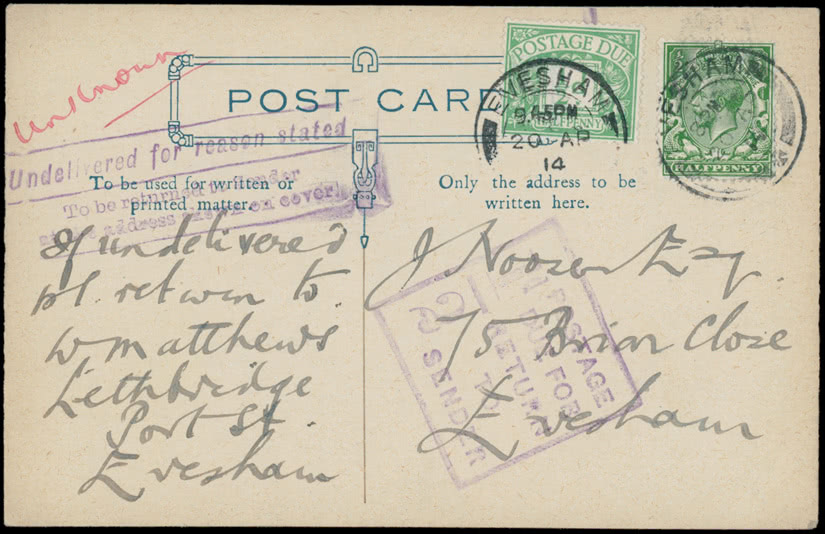 Unknown
POST CARD
POSTAGE DUE
EVESHAM
4.15 PM
20 AP
14
EVESHAM
HALFPENNY
Undelivered for reason stated
To be returned to Sender
at the address on cover
To be used for written or
printed matter.
Only the address to be
written here.
If undelivered
pl. return to
W Matthews
Lethbridge
Port St.
Evesham
J Nooser Esq
75 Briar Close
Evesham
POSTAGE
DUE FOR
RETURN
TO
SENDER